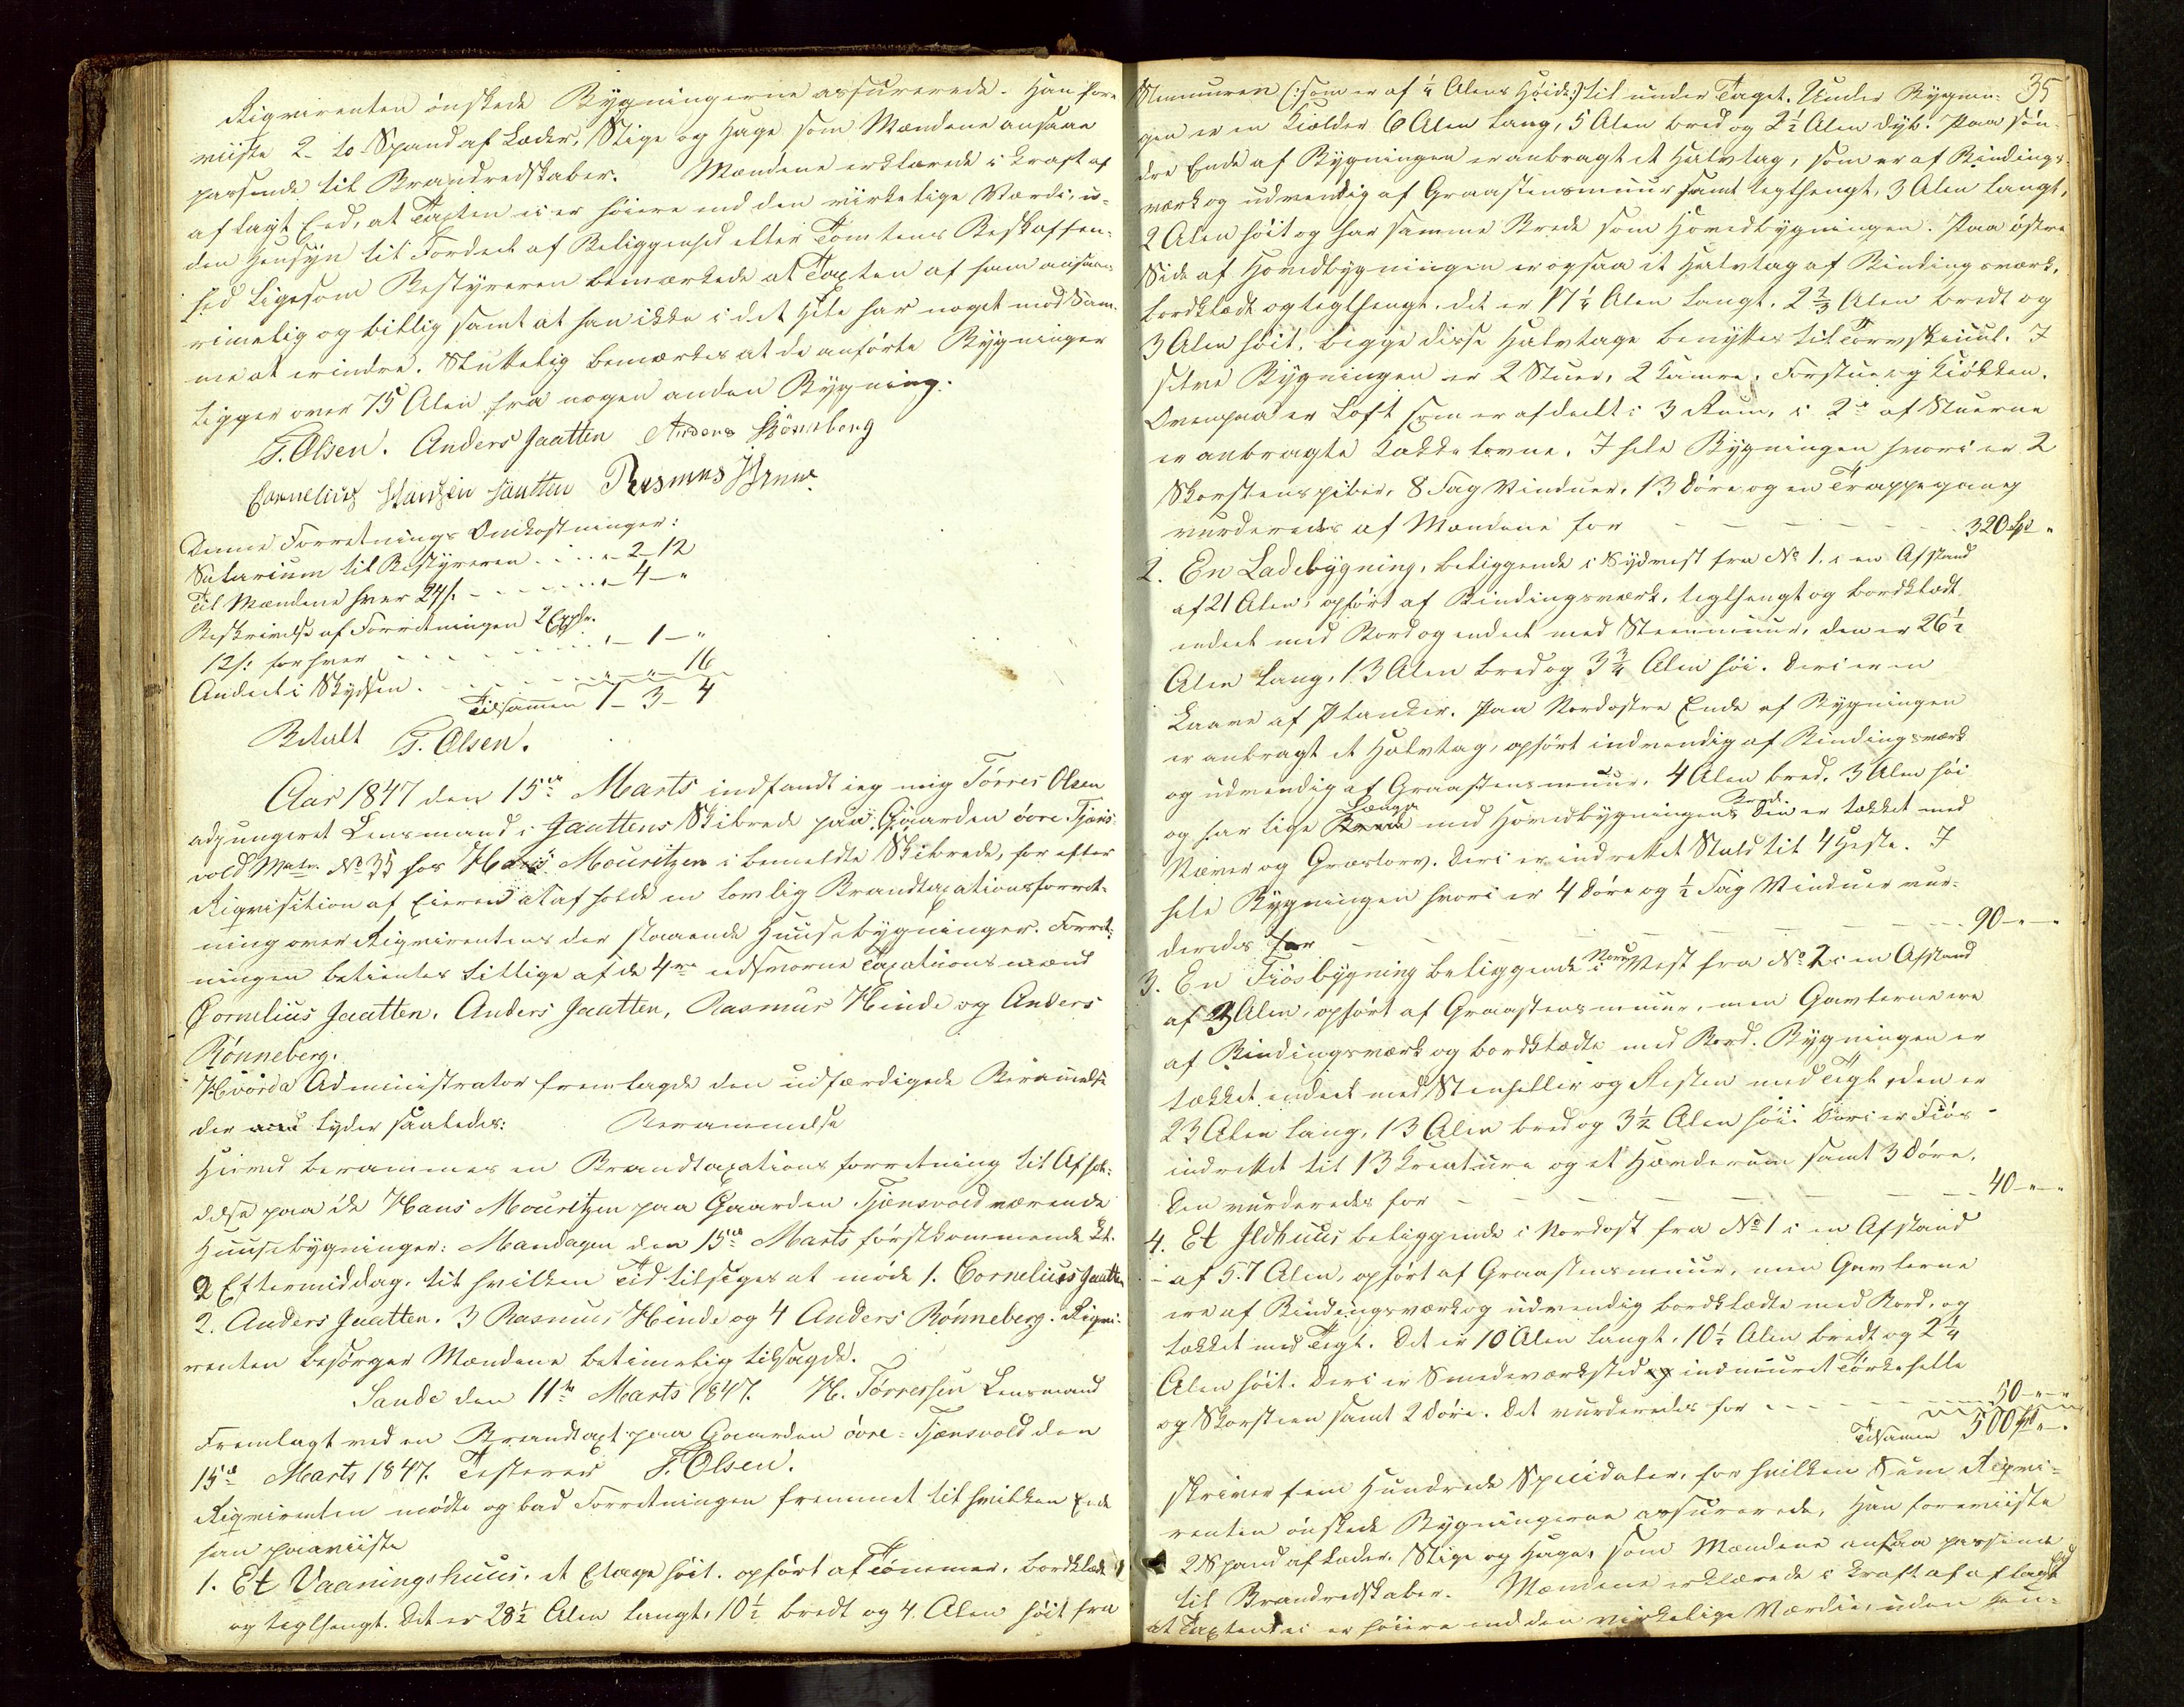 Reqvirenten ønskede Bygningerne assurerede. Han fore
viiste 2 to Spand af Læder, Stige og Hage som Mændene ansaae
passende til Brandredskaber. Mændene erklærede i Kraft af
aflagt Eed, at Taxten ei er høiere end den virkelige Værdi, u-
den Hensyn til Fordeel af Beliggenhed eller Tomtens Beskaffen-
hed ligesom Bestyreren bemærkede at Taxten af ham ansaaes
rimelig og billig samt at han ikke i det Hele har noget mod Sam-
me at erindre. Sluttelig bemærkes at de anførte Bygninger
ligger over 75 Alen fra nogen anden Bygning.
T. Olsen. Anders Jaatten Anders Rönneberg
Cornelius Hansen Jaatten Rasmus Hinne
Denne Forretnings Omkostninger:
Salarium til Bestyreren . . . „ 2 – 12
Til Mændene hver 24 s. – – – „ – 4 – „
Beskrivelse af Forretningen 2 Expl.
12 s: for hver – – – „ – 1 – „
Andeel i Skydsen. – – – „ „ 16
Tilsamen 1 – 3 – 4
Betalt T. Olsen.
Aar 1847 den 15de Marts indfandt jeg mig Tørres Olsen
adjungeret Lensmand i Jaattens Skibrede paa Gaarden øvre Tjens-
vold Matr. No 35 hos Hans Mouritzen i bemeldte Skibrede, for efter
Reqvisition af Eieren at afholde en lovlig Brandtaxationsforret-
ning over Reqvirentens der staaende Huusebygninger. Forret-
ningen betientes tillige af de 4re edsvorne Taxationsmænd
Cornelius Jaatten, Anders Jaatten, Rasmus Hinde og Anders
Rønneberg.
Hvorda Administrator fremlagde den udfærdigede Berammelse
der lyder saaledes: Berammelse
Hirved berammes en Brandtaxations forretning til Afhol-
delse paa de Hans Mouritzen paa Gaarden Tjensvold værende
Huusebygninger: Mandagen den 15de Marts førstkommende Kl.
2 Eftermiddag, til hvilken Tid tilsiges at møde 1. Cornelius Jaatten
2. Anders Jaatten. 3 Rasmus Hinde og 4 Anders Rønneberg. Reqvi-
renten besørger Mændene betimelig tilsagde.
Sande den 11te Marts 1847. H. Tørressen Lensmand
Fremlagt ved en Brandtaxt paa Gaarden øvre Tjensvold den
15de Marts 1847. Testerer T. Olsen.
Reqvirenten mødte og bad Forretningen fremmet til hvilken Ende
han paaviiste
1. Et Vaaningshuus, et Etage høit, opført af Tømmer, bordklædt
og teglhengt. Det er 28½ Alen langt, 10½ bredt og 4 Alen høit fra
35
Steenmuren (: som er af ¼ Alens Høide :) til under Taget. Under Bygnin-
gen er en Kielder 6 Alen lang, 5 Alen bred og 2½ Alen dyb. Paa søn-
dre Ende af Bygningen er anbragt et Halvtag, som er af Bindings-
værk og udvendig af Graasteensmuur samt teglhengt, 3 Alen langt,
2 Alen høit og har samme Brede som Hovedbygningen. Paa østre
Side af Hovedbygningen er ogsaa et Halvtag af Bindingsværk,
bordklædt og teglhengt, det er 17¼ Alen langt, 2⅔ Alen bredt og
3 Alen høit. begge disse Halvtage benyttes til Torvskiuul. I
selve Bygningen er 2 Stuer, 2 Kamre, Forstue og Kiøkken.
Ovenpaa er Loft som er afdeelt i 3 Rum, i 2de af Stuerne
er anbragte Kakkelovne. I hele Bygningen hvori er 2
Skorstenspiber, 8 Fag Vinduer, 13 Døre og en Trappegang
vurderedes af Mændene for – – – 320 Spd „
2. En Ladebygning, beliggende i Sydvest fra No 1. i en Afstand
af 21 Alen, opført af Bindingsværk, teglhengt og bordklædt
endeel med Bord og endeel med Steenmuur, den er 26½
Alen lang, 13 Alen bred og 3¾ Alen høi. Deri er en
Laave af Planker. Paa Nordøstre Ende af Bygningen
er anbragt et Halvtag, opført indvendig af Bindingsværk
og udvendig af Graasteensmuur, 4 Alen bred, 3 Alen høi
og har lige Længe med Hovedbygningens Brede Den er tækket med
Næver og Græstorv. Deri er indrettet Stald til 4 Heste. I
hele Bygningen hvori er 4 Døre og ½ Fag Vinduer vur-
deredes for – – – 90 – „ – „
3. En Fiøsbygning beliggende i Nord Vest fra No 2 i en Afstand
af 3 Alen, opført af Graasteensmuur, men Gavlerne ere
af Bindingsværk og bordklædte med Bord. Bygningen er
tækket endeel med Steenheller og Resten med Tegl, den er
23 Alen lang, 13 Alen bred og 3½ Alen høi. Deri er Fiøs
indrettet til 13 Kreature og et Hønderum samt 3 Døre.
Den vurderedes for – – – 40 – „ – „
4. Et Ildhuus beliggende i Nordost fra No 1 i en Afstand
af 57 Alen, opført af Graasteensmuur, men Gavlerne
ere af Bindingsværk og udvendig bordklædte med Bord, og
tækket med Tegl. Det er 10 Alen langt, 10½ Alen bredt og 2¼
Alen høit. Deri er Smedeværksted og indmuuret Tørkehelle
og Skorsteen samt 2 Døre. Det vurderedes for – – – 50 – „ – „
Tilsamen 500 Spd „ – „
skriver fem Hundrede Speciedaler, for hvilken Sum Reqvi-
renten ønskede Bygningerne assurerede, Han foreviiste
2 Spand af Læder, Stige og Hage, som Mændene ansaa passende
til Brandredskaber. Mændene erklærede i Kraft af aflagt Eed
at Taxten ei er høiere end den virkelige Værdie, uden Hen-